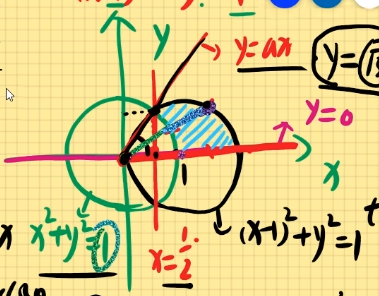 y
y=ax
y=
y=0
x
1
x²+y²=1
x=1/2
(x-1)²+y²=1